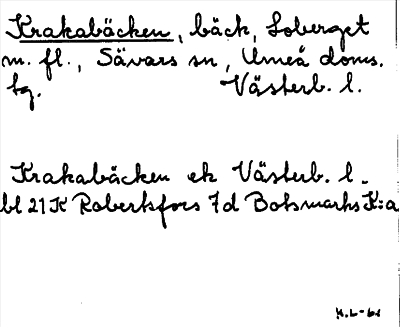 Krakabäcken, bäck, Soberget
m. fl., Sävars sn, Umeå doms.
tg. Västerb. l.
Krakabäcken ek Västerb. l.
bl 21 K Robertsfors 7d Botsmarks K:a